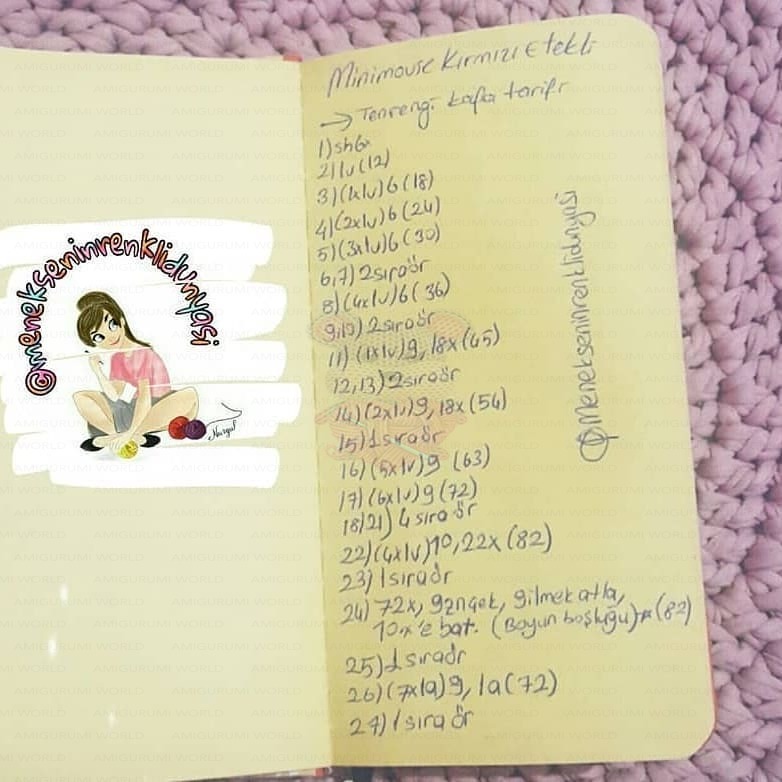 @meneksenınrenklidunyasi
Nurgul
Minimouse Kırmızı Etekli
→ Tenrengi kafa tarifi
1) sh6x
2) lv (12)
3) (1xlv)6 (18)
4) (2xlv)6 (24)
5) (3xlv)6 (30)
6,7) 2 sıra ör
8) (4xlv)6 (36)
9,10) 2 sıra ör
11) (1xlv)9, 18x (45)
12,13) 2 sıra ör
14) (2xlv)9, 18x (54)
15) 1 sıra ör
16) (5xlv)9 (63)
17) (6xlv)9 (72)
18/21) 4 sıra ör
22) (4xlv)10, 22x (82)
23) 1 sıra ör
24) 72x, 9znçek, 9ilmek atla,
10.x'e bat. (Boyun boşluğu) (82)
25) 1 sıra ör
26) (7x1a)9, 1a (72)
27) 1 sıra ör
@Menekseninrenklidunyasi
AMIGURUMI WORLD